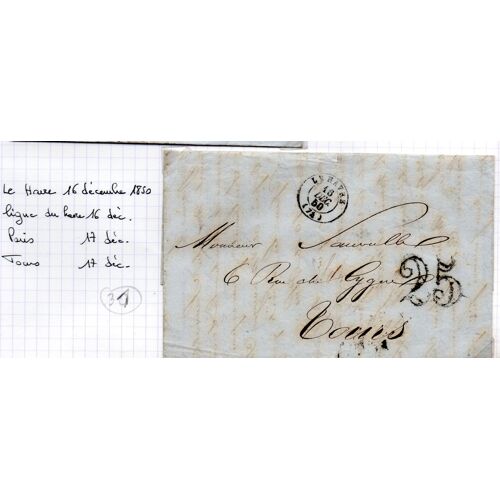 Le Havre 16 décembre 1850
ligne du havre 16 déc.
Paris 17 déc.
Tours 17 déc.
31
LE HAVRE
16
DEC.
50
(74)
Monsieur
6 Rue du Cygne
25
Tours